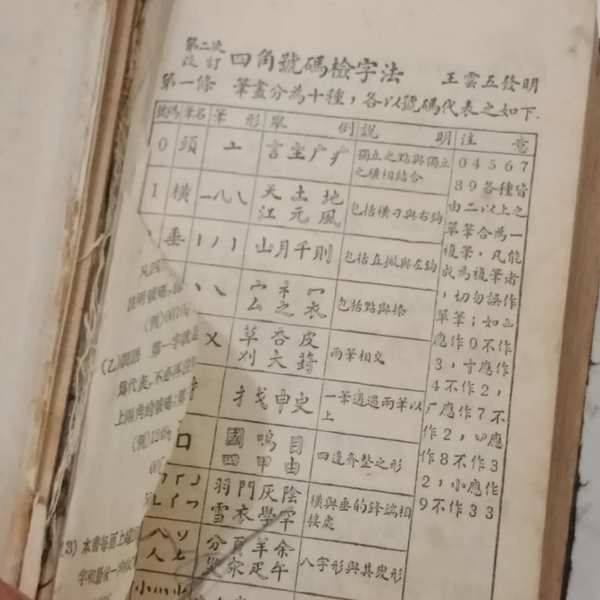 第二次
改訂
四角號碼檢字法
王雲五發明
第一條 筆畫分為十種，各以號碼代表之如下
號碼 筆名 筆形 舉例 說明 注意
0 頭 亠 言主广疒 獨立之點與獨立
之橫相結合
1 橫 一 天土地
江元風 包括橫刁與右鈎
垂 山月千則 包括直撇與左鈎
宀衤冖
厶之衣 包括點與捺
草杏皮
刈大葑 兩筆相交
扌戈申史 一筆通過兩筆以
上
口 國鳴目
四甲由 四邊齊整之形
羽門灰陰
雪衣學罕 橫與垂的鋒端相
接處
八 分頁羊余
災疋午 八字形與其變形
小
04567
89各種皆
由二以上之
單筆合為一
複筆，凡能
成為複筆者
，切勿誤作
單筆；如
應作0不作
3，寸應作
4不作2，
厂應作7不
作2，
作8不作3
2，小應作
9不作33
說明號碼，
(例)0010
(乙)詞語 第一字就是
上兩角的號碼；第
(例)
(3) 本書每面上端
字和最後一